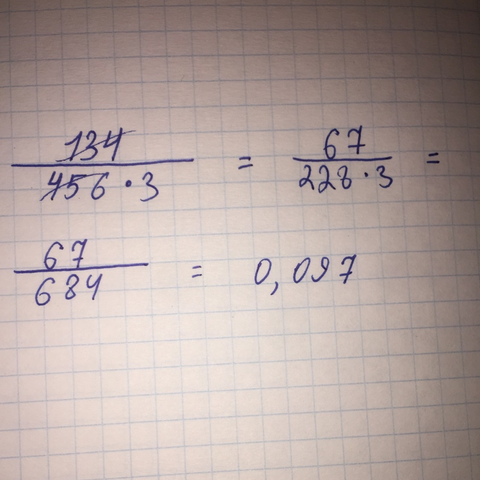 134/(456 · 3) = 67/(228 · 3) =
67/684 = 0,097